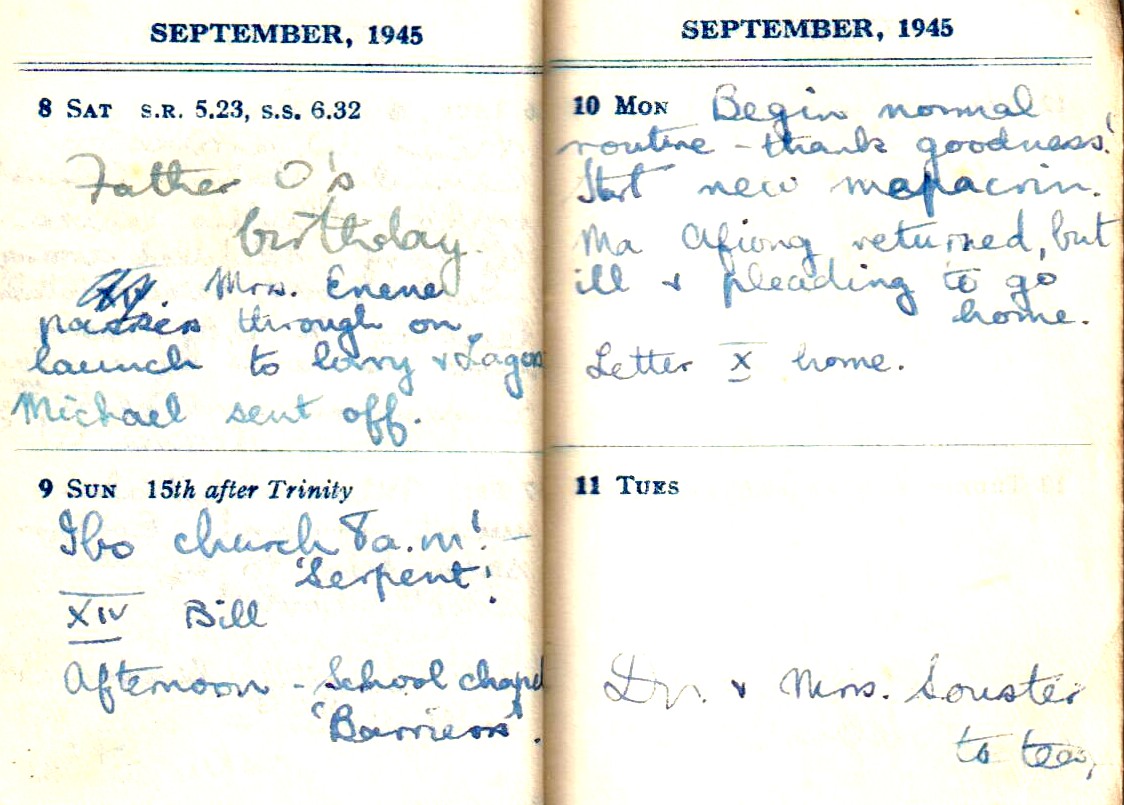 SEPTEMBER, 1945
8 SAT S.R. 5.23, S.S. 6.32
Father O's
birthday.
Mrs. Enene
passes through on
launch to lorry & Lagos
Michael sent off.
9 SUN 15th after Trinity
Ibo church 8 a.m! -
'Serpent'.
XIV Bill
Afternoon - School chapel
'Barriers'.
SEPTEMBER, 1945
10 MON Begin normal
routine - thank goodness!
Start new mapacrin.
Ma Afiong returned, but
ill & pleading to go
home.
Letter X home.
11 TUES
Dr. & Mrs. Souster
to tea,